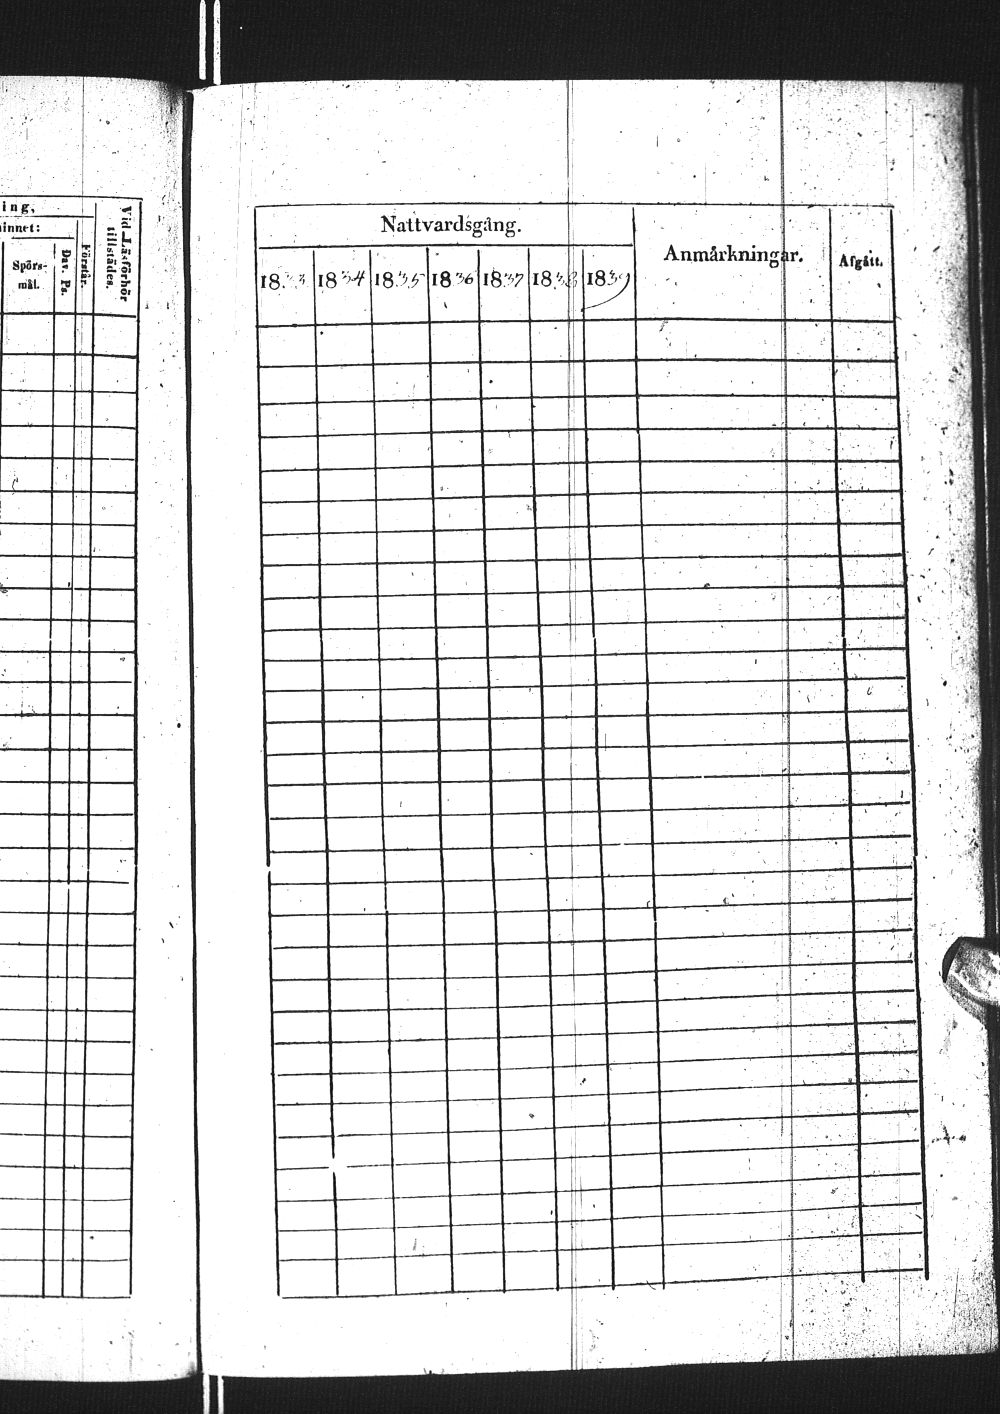 ing,
innet:
Spörs-
mål.
Dav. Ps.
Förstår.
Vid Läsförhör
tillstädes.
Nattvardsgång.
1833 1834 1835 1836 1837 1838 1839
Anmårkningar.
Afgått.